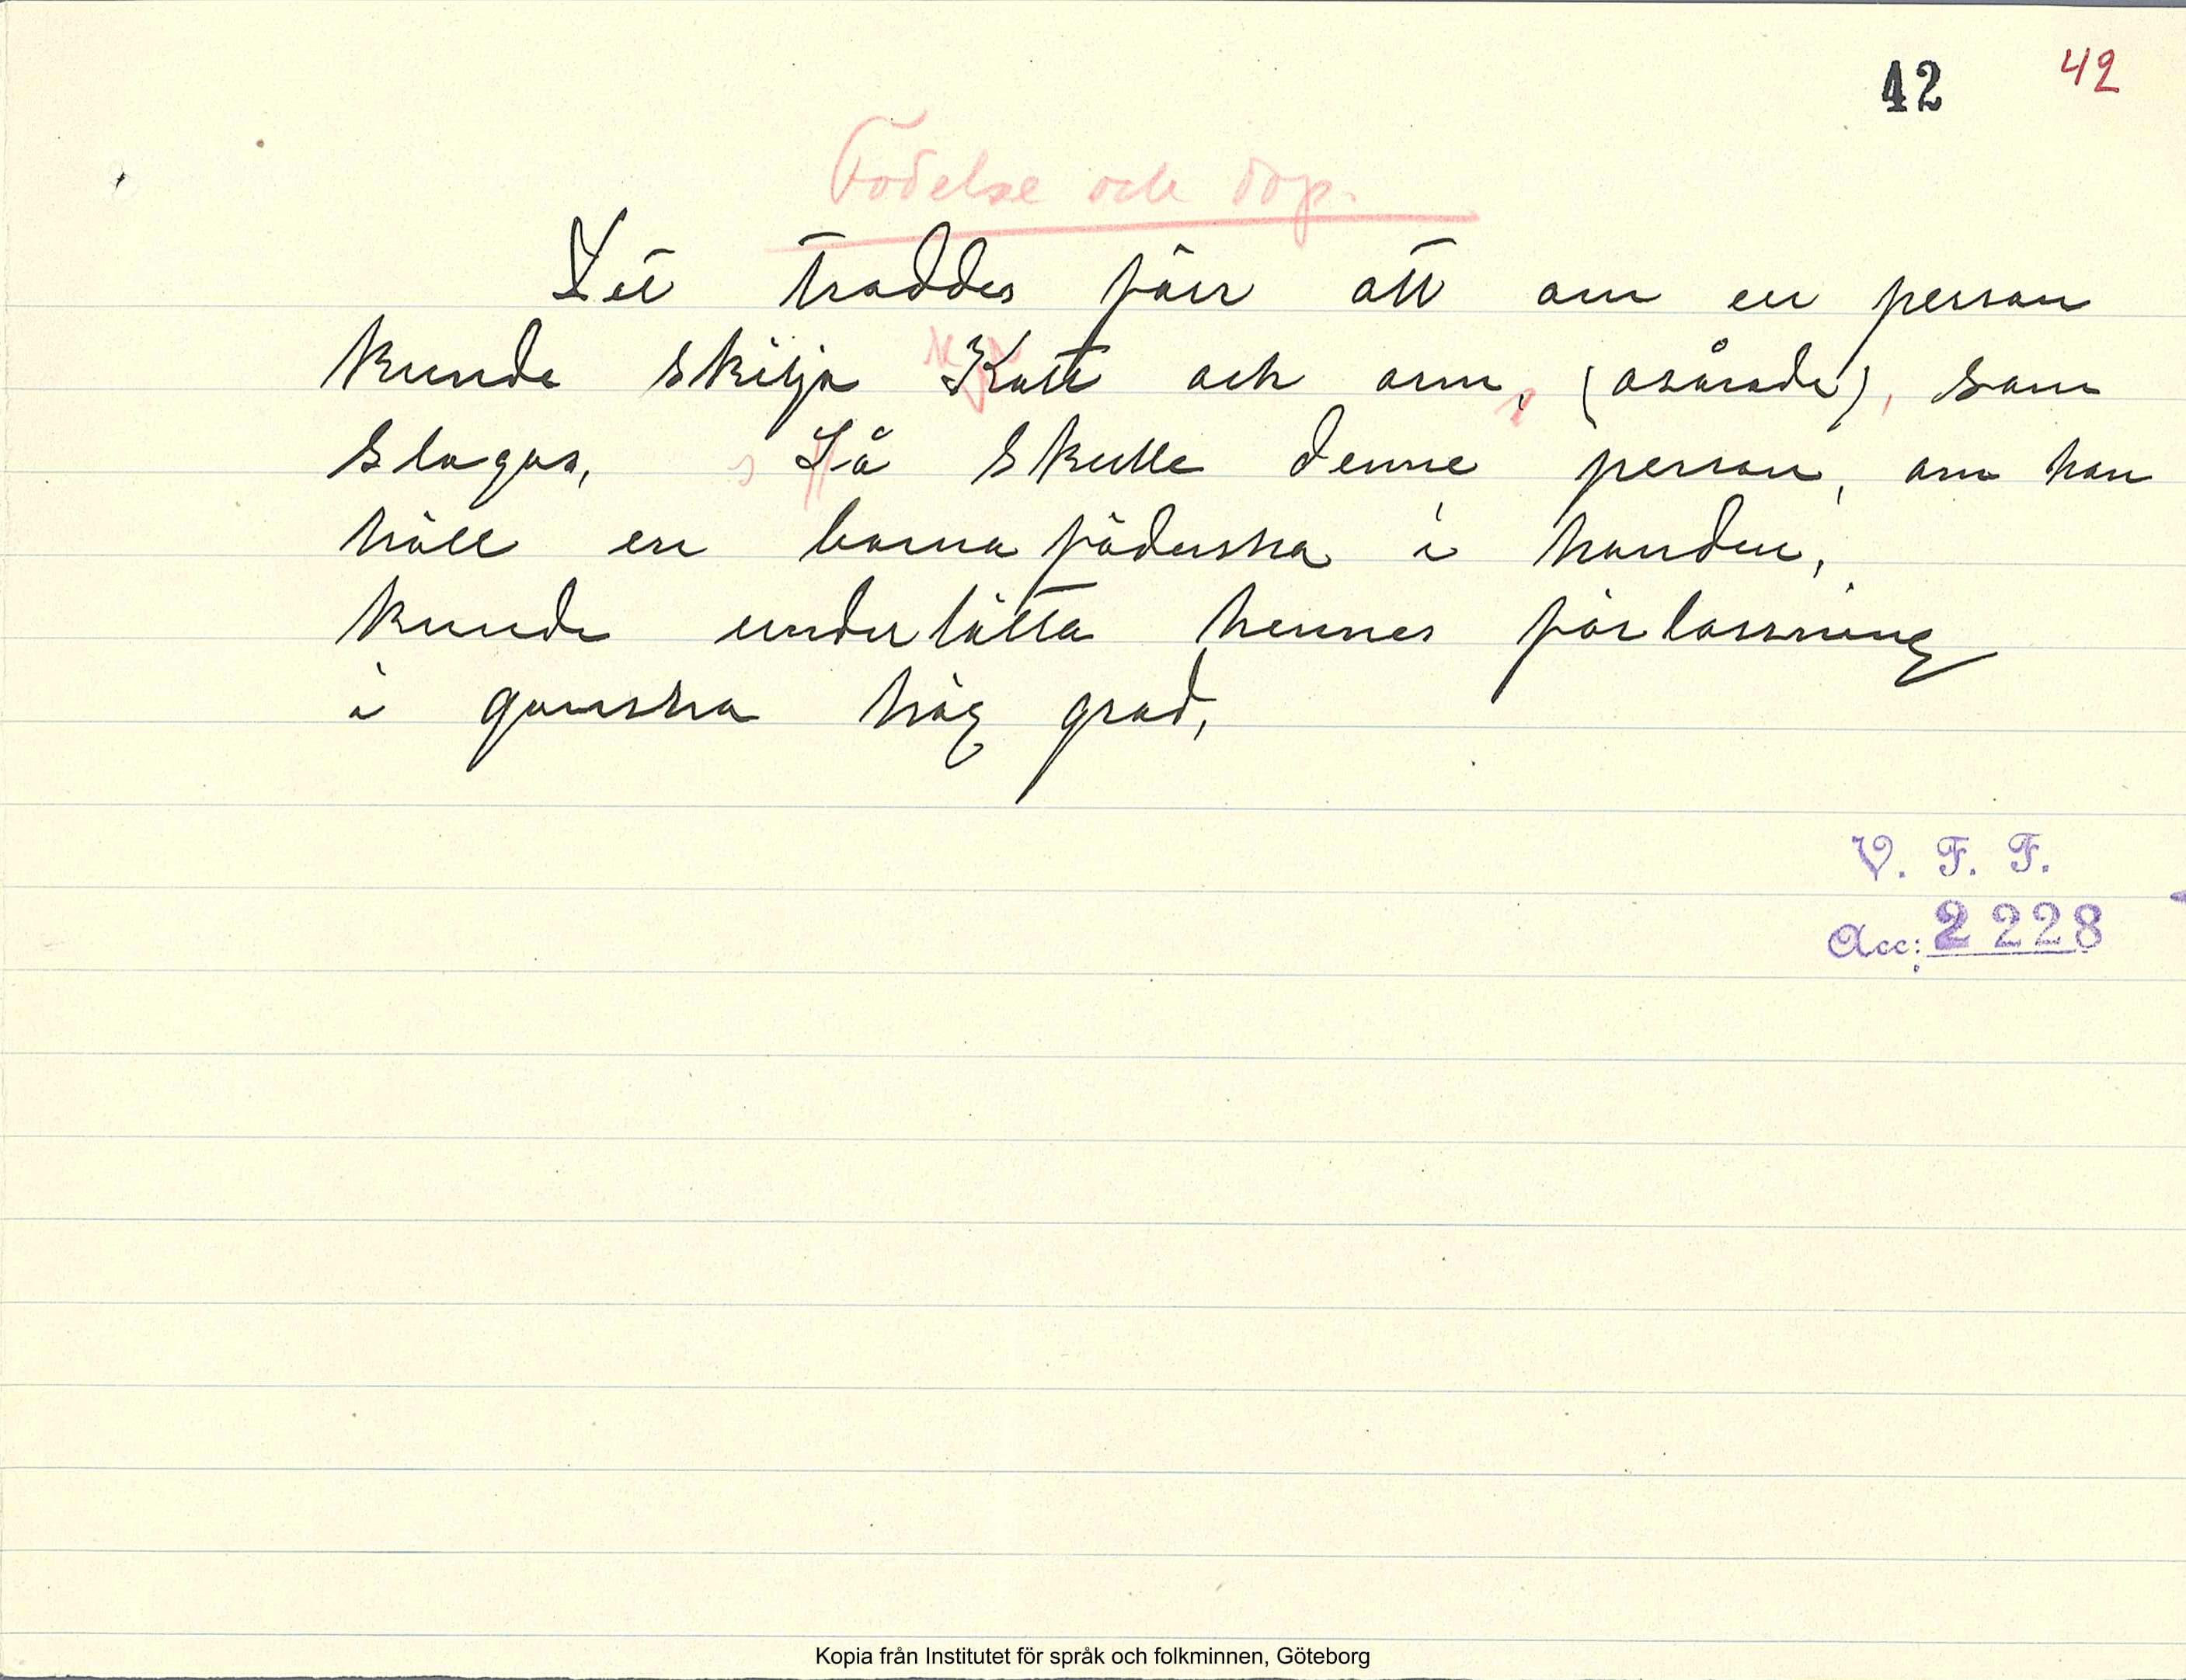 42 42
Födelse och dop.
Det troddes förr att om en person
kunde skilja Katt och orm, (osårade), som
slogos, Så skulle denne person, om han
höll en barnaföderska i handen,
kunde underlätta hennes förlossning
i ganska hög grad.
V. F. F.
Acc: 2228
Kopia från Institutet för språk och folkminnen, Göteborg